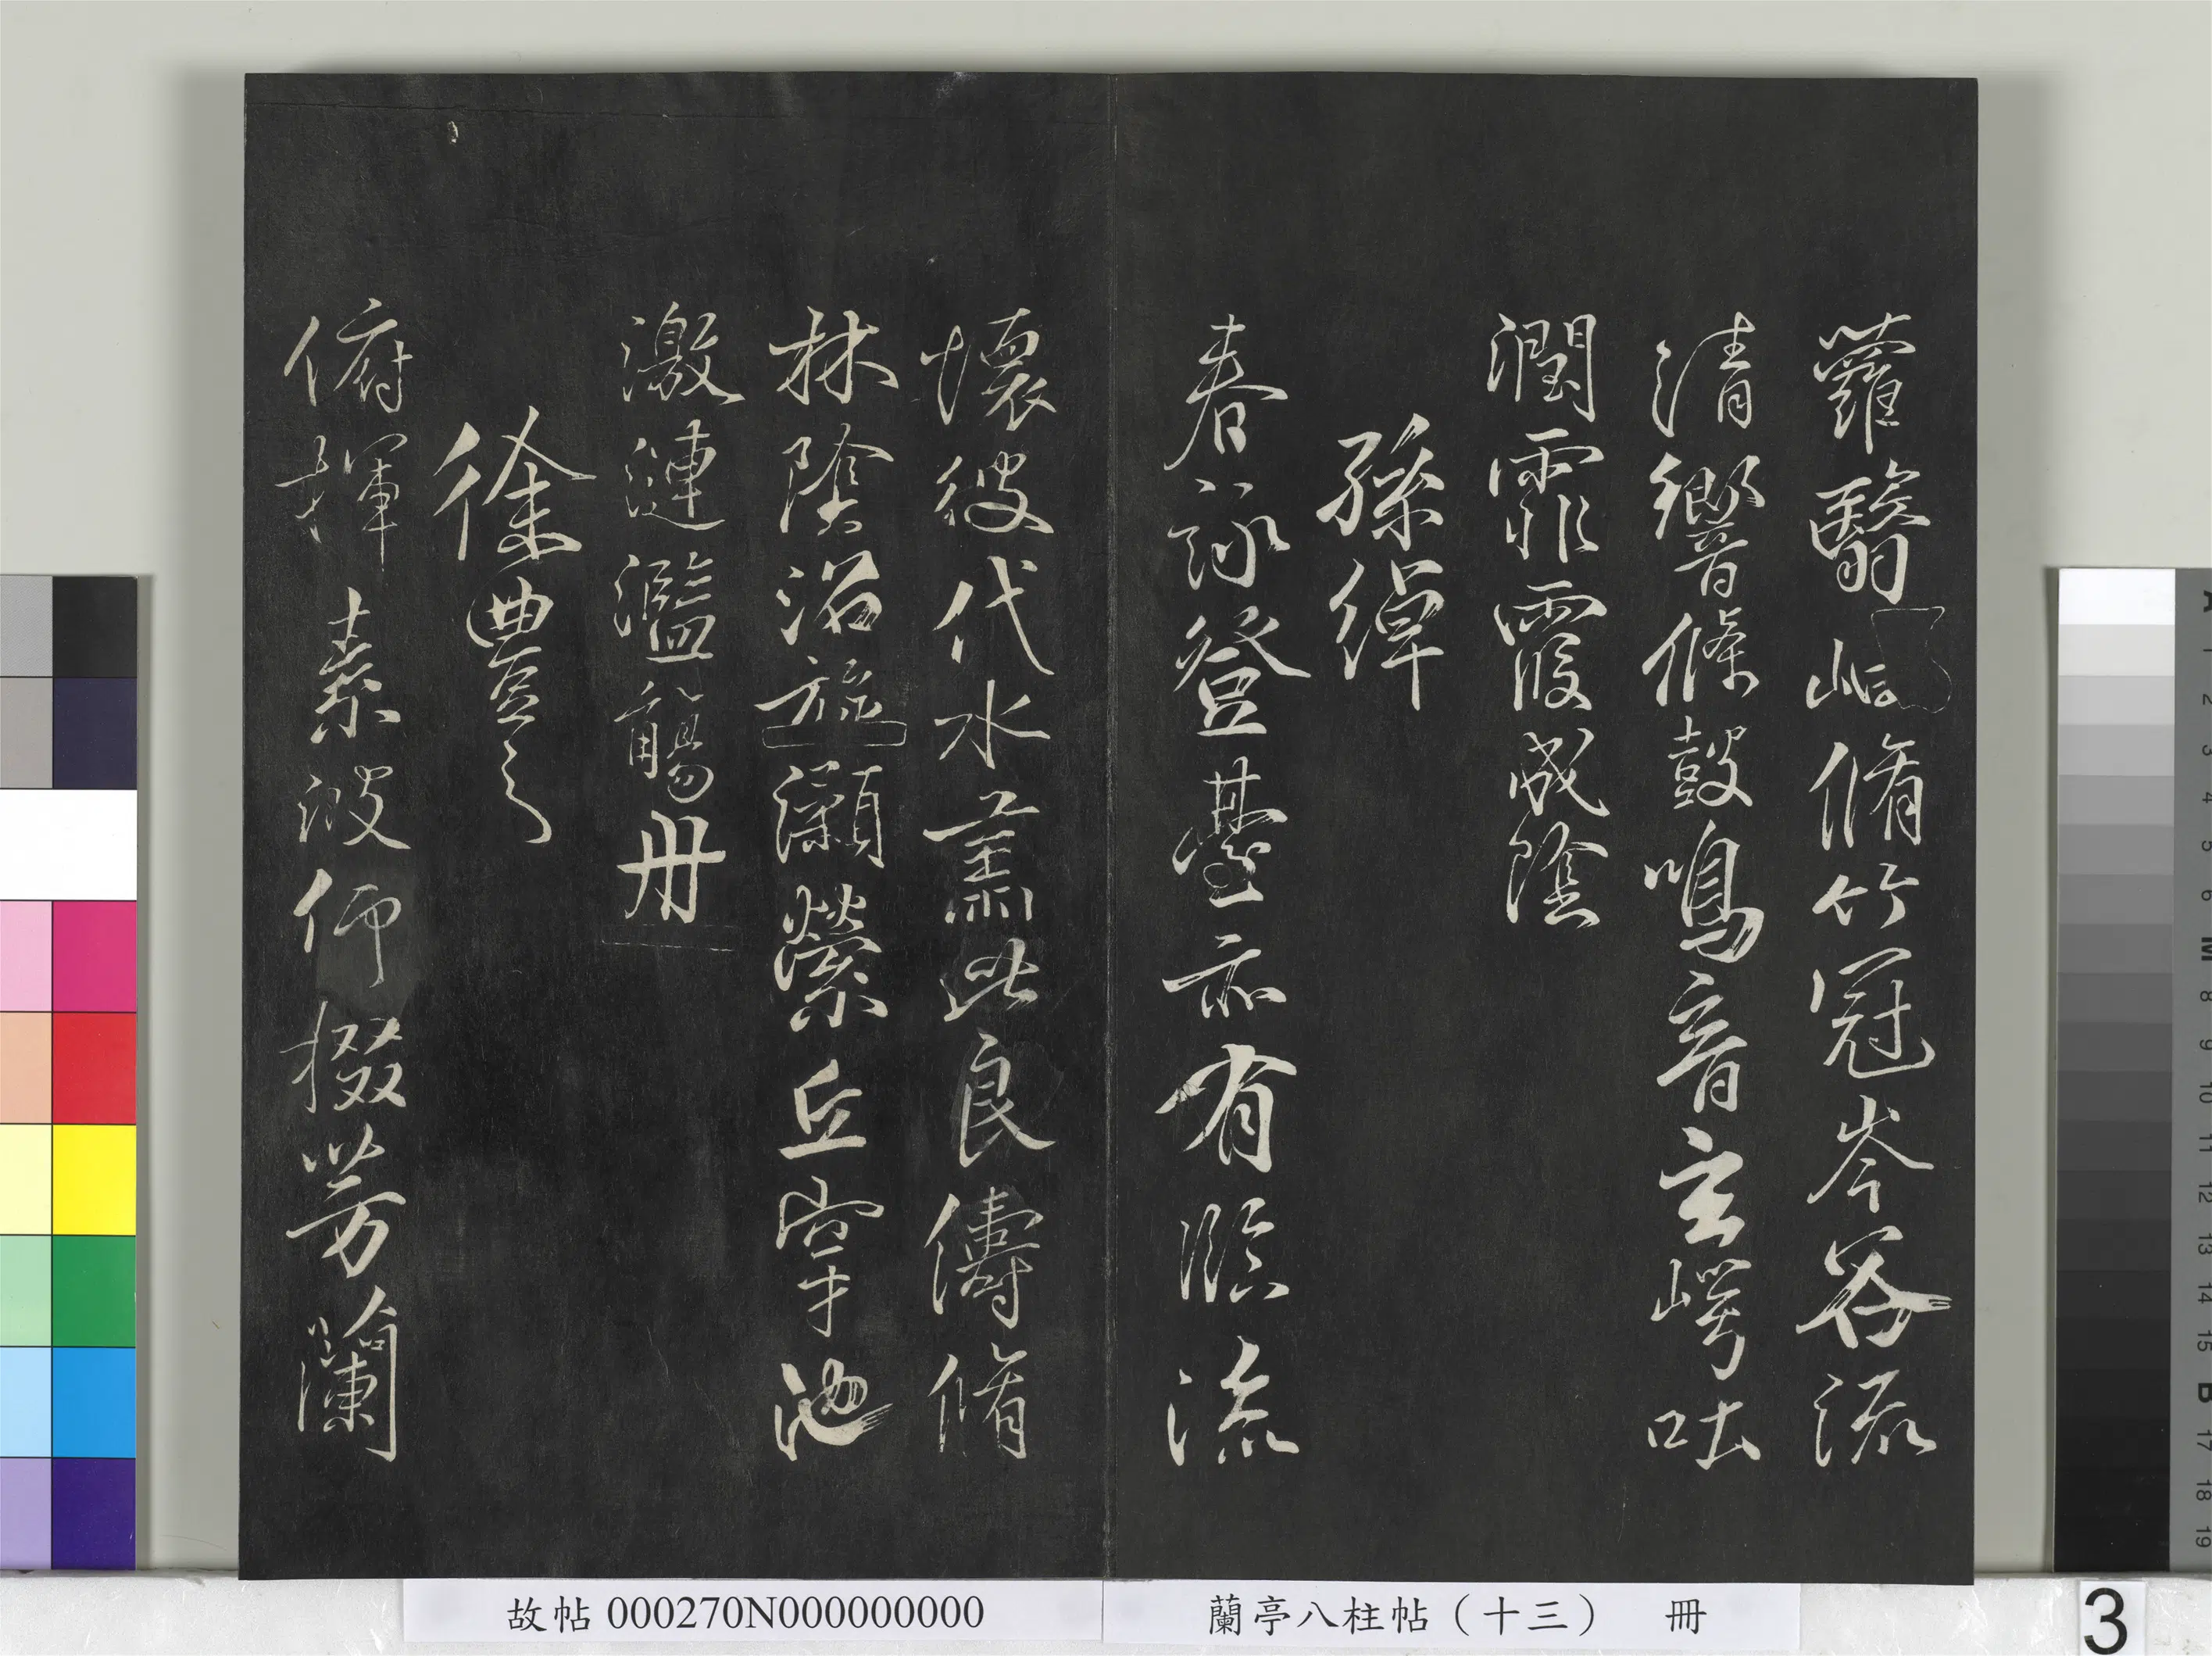 蘿翳岫脩竹冠岑谷流
清響條鼓鳴音玄崿吐
潤霏霧成陰
孫綽
春詠登臺亦有臨流
懷彼伐木肅此良儔脩
林陰沼旋瀨縈丘穿池
激湍連濫觴舟
徐豐之
俯揮素波仰掇芳蘭
蘭亭八柱帖（十三） 冊
故帖 000270N000000000
3